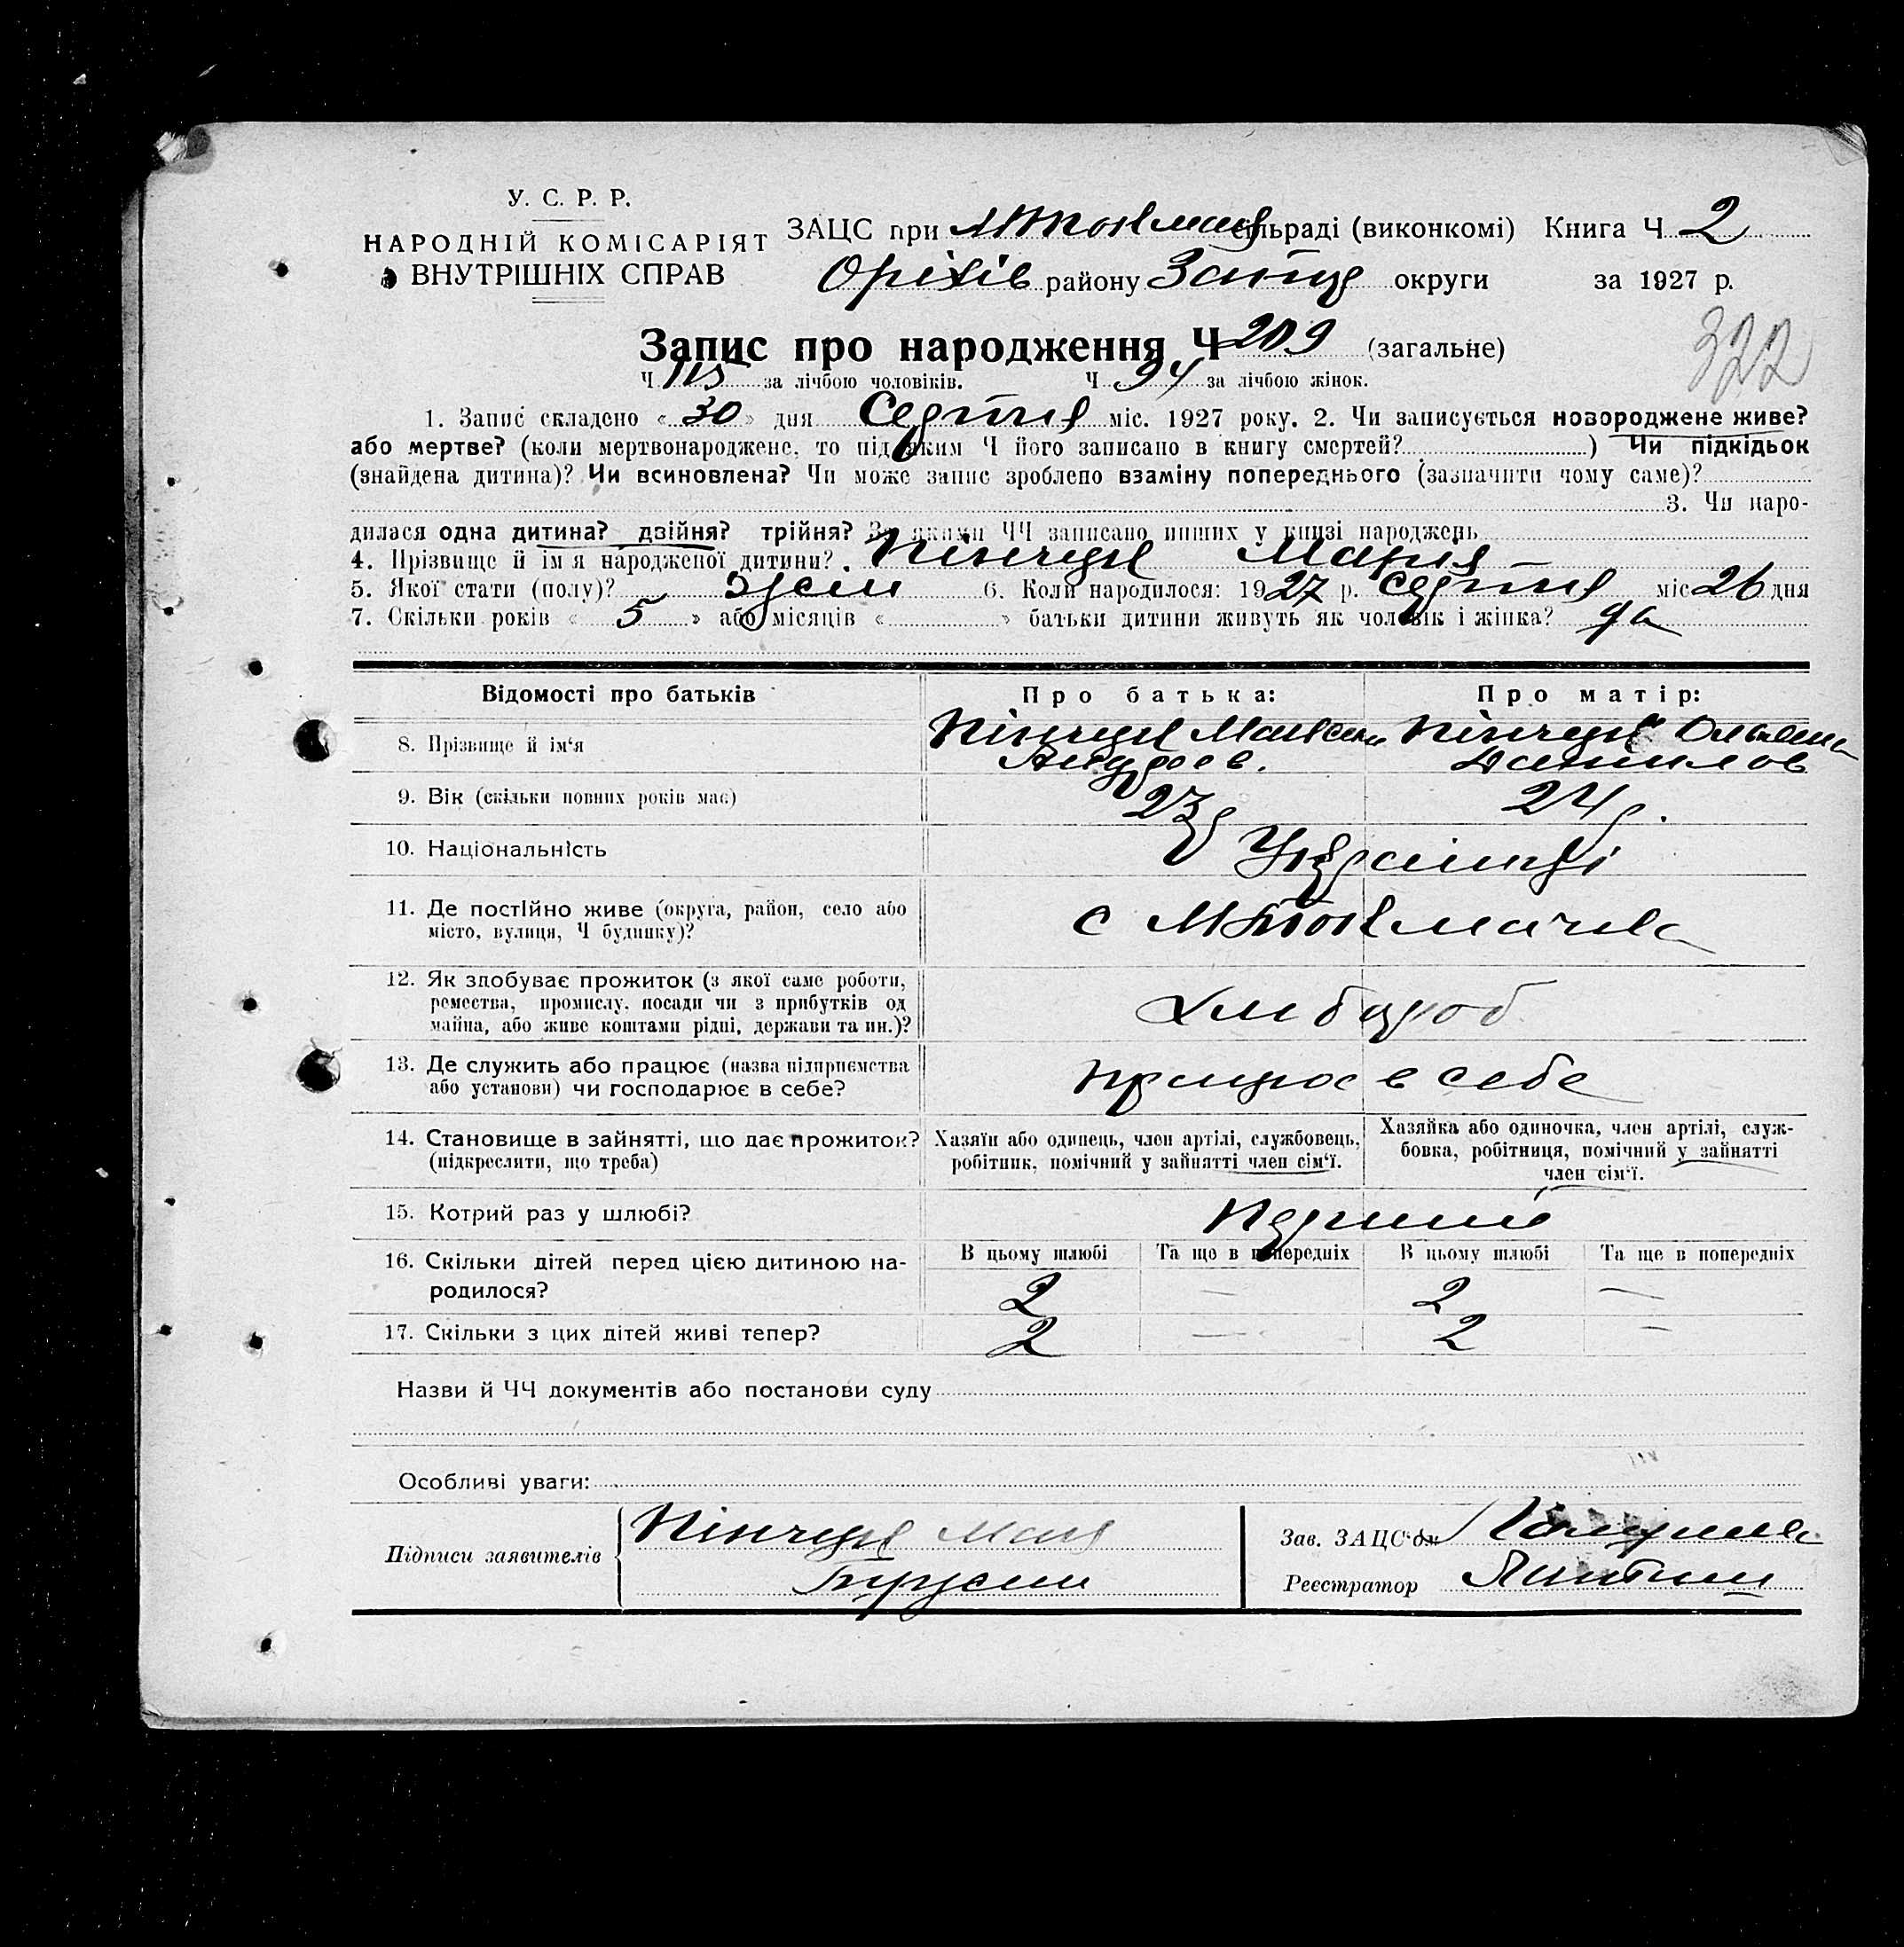 У. С. Р. Р.
НАРОДНІЙ КОМІСАРІЯТ
ВНУТРІШНІХ СПРАВ
ЗАЦС при сільраді (виконкомі) Книга Ч 2
Оріхів району Запор округи за 1927 р.
322
Запис про народження Ч 209 (загальне)
Ч 115 за лічбою чоловіків. Ч 94 за лічбою жінок.
1. Запис складено «30» дня Серпня міс. 1927 року. 2. Чи записується новороджене живе?
або мертве? (коли мертвонароджене, то під яким Ч його записано в книгу смертей? ) Чи підкідьок
(знайдена дитина)? Чи всиновлена? Чи може запис зроблено взаміну попереднього (зазначити чому саме)?
3. Чи наро-
дилася одна дитина? двійня? трійня? За якими ЧЧ записано инших у книзі народжень
4. Прізвище й ім'я народженої дитини? Кінчук Марія
5. Якої стати (полу)? жен 6. Коли народилося: 1927 р. серпня міс 26 дня
7. Скільки років «5» або місяців « » батьки дитини живуть як чоловік і жінка? да
Відомості про батьків Про батька: Про матір:
8. Прізвище й ім'я Кінчук Максим Кінчук Ольяна
Андреев. Данилов
9. Вік (скільки повних років має) 23 р 24 р.
10. Національність Українці
11. Де постійно живе (округа, район, село або
місто, вулиця, Ч будинку)? с МТокмачка
12. Як здобуває прожиток (з якої саме роботи,
ремества, промислу, посади чи з прибутків од
майна, або живе коштами рідні, держави та ин.)? Хлібороб
13. Де служить або працює (назва підприємства
або установи) чи господарює в себе? працює в себе
14. Становище в зайнятті, що дає прожиток?
(підкреслити, що треба)
Хазяїн або одинець, член артілі, службовець,
робітник, помічний у зайнятті член сім'ї.
Хазяйка або одиночка, член артілі, служ-
бовка, робітниця, помічний у зайнятті
член сім'ї.
15. Котрий раз у шлюбі? Перший
16. Скільки дітей перед цією дитиною на-
родилося?
В цьому шлюбі Та ще в попередніх В цьому шлюбі Та ще в попередніх
2 — 2 —
17. Скільки з цих дітей живі тепер? 2 — 2 —
Назви й ЧЧ документів або постанови суду
Особливі уваги:
Підписи заявителів Кінчук
Зав. ЗАЦС'ом
Реєстратор